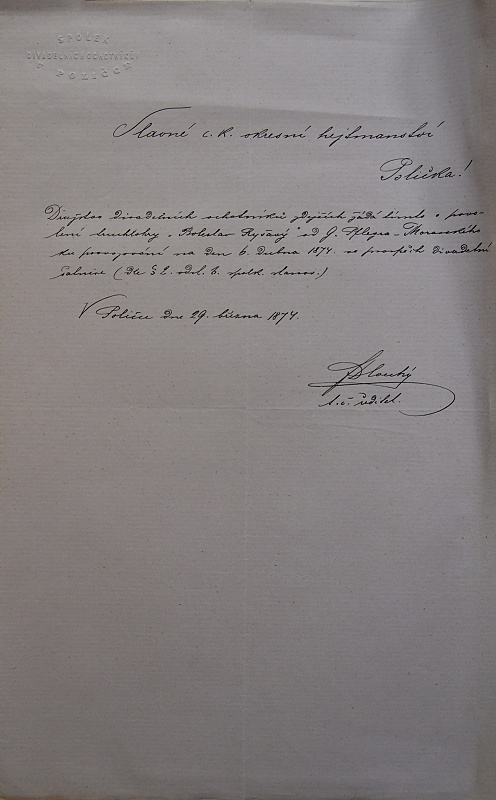 SPOLEK
DIVADELNÍCH OCHOTNÍKŮ
V POLIČCE
Slavné c. k. okresní hejtmanství
Polička!
Družstvo divadelních ochotníků zdejších žádá tímto o povo-
lení truchlohry „Boleslav Ryšavý" od J. Flegra-Moravského
ku provozování na den 6. dubna 1874 ve prospěch divadelní
(dle § 2. odst. b. spolk. stanov.)
V Poličce dne 29. března 1874.
Dlouhý
t. č. ředitel.